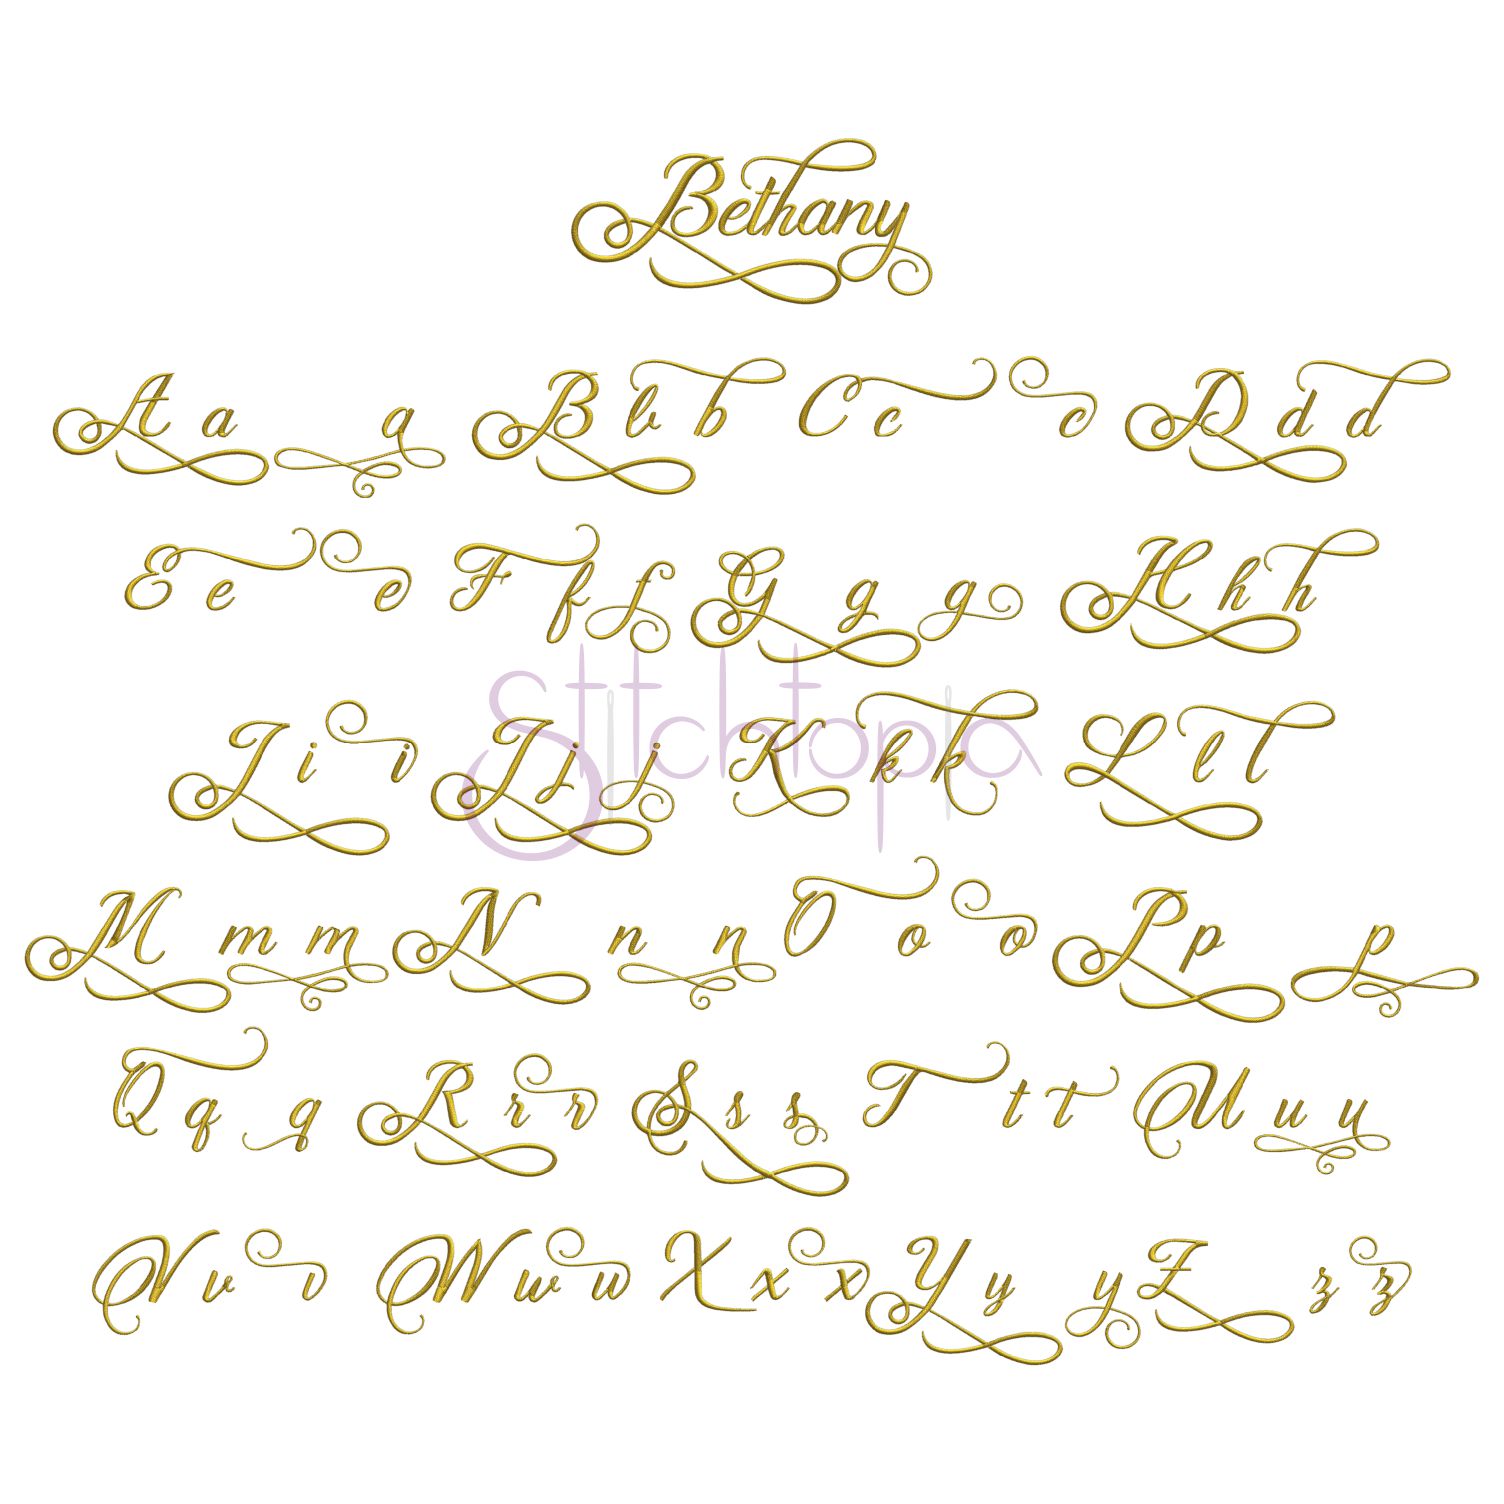 Bethany
A a a B b b C c c D d d
E e e F f f G g g H h h
Stitchtopia
I i i J j j K k k L l l
M m m N n n O o o P p p
Q q q R r r S s s T t t U u u
V v v W w w X x x Y y y Z z z